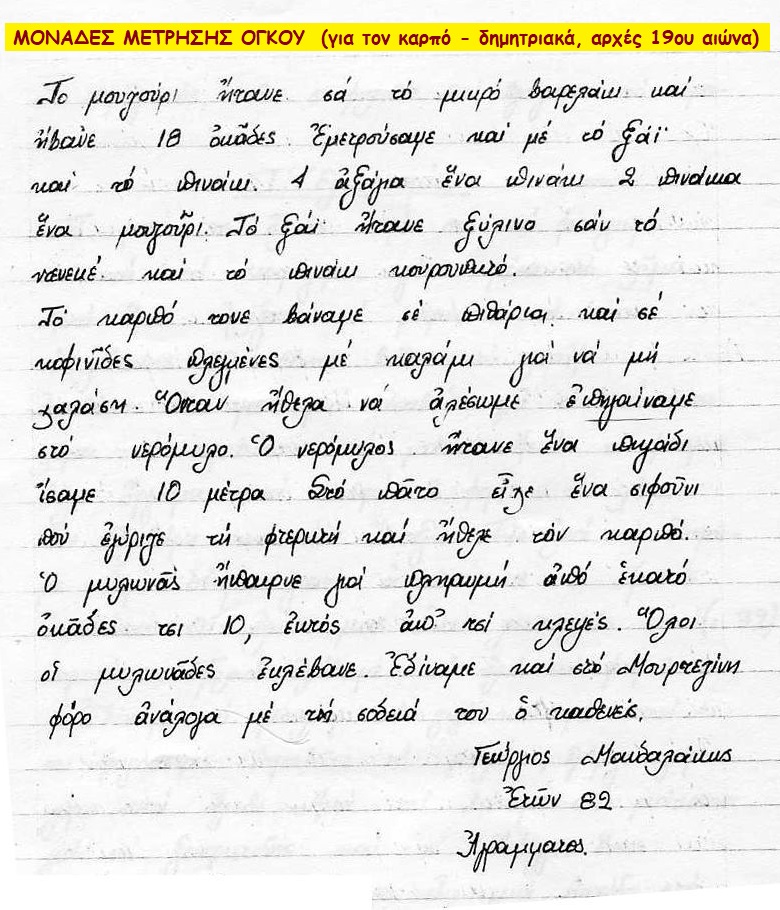 ΜΟΝΑΔΕΣ ΜΕΤΡΗΣΗΣ ΟΓΚΟΥ (για τον καρπό - δημητριακά, αρχές 19ου αιώνα)
Το μουζούρι ἤτανε σά τό μικρό βαρελάκι καί
ἤβανε 18 ὀκάδες. Ἐμετρούσαμε καί μέ τό ξάϊ
καί τό πινάκι. 4 ἀξάγια ἕνα πινάκι 2 πινάκια
ἕνα μουζοῦρι. Τό ξάϊ ἤτανε ξύλινο σάν τό
ντενεκέ καί τό πινάκι κουρουπητό.
Τό καρπό τονε βάναμε σέ πιθάρια καί σέ
κοφινῖδες πλεγμένες μέ καλάμι γιά νά μή
χαλάση. Ὅταν ἤθελα νά ἀλέσωμε ἐπηγαίναμε
στό νερόμυλο. Ὁ νερόμυλος ἤτανε ἕνα πηγάδι
ἴσαμε 10 μέτρα Στό πᾶτο εἶχε ἕνα σιφοῦνι
πού ἐγύριζε τή φτερωτή καί ἤθελε τόν καρπό.
Ὁ μυλωνᾶς ἤπαιρνε γιά πληρωμή ἀπό ἑκατό
ὀκᾶδες τσι 10, ἐκτός ἀπ' τσί κλεψές. Ὅλοι
οἱ μυλωνᾶδες ἐκλέβανε. Ἐδίναμε καί στό Μουρτεζίνη
φόρο ἀνάλογα μέ τή σοδειά του ὁ καθενείς.
Γεώργιος Μανδαλάκης
Ἐτῶν 82
Ἀγράμματος.